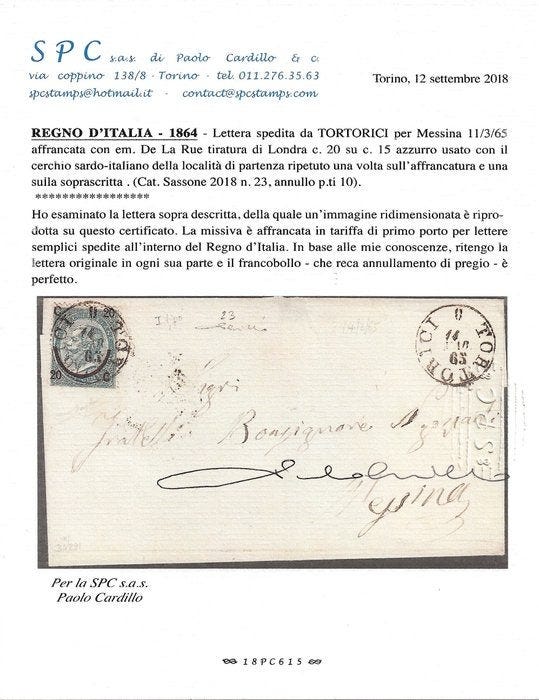 SPC s.a.s. di Paolo Cardillo & c.
via coppino 138/8 · Torino · tel. 011.276.35.63
spcstamps@hotmail.it · contact@spcstamps.com
Torino, 12 settembre 2018
REGNO D'ITALIA - 1864 - Lettera spedita da TORTORICI per Messina 11/3/65
affrancata con em. De La Rue tiratura di Londra c. 20 su c. 15 azzurro usato con il
cerchio sardo-italiano della località di partenza ripetuto una volta sull'affrancatura e una
sulla soprascritta . (Cat. Sassone 2018 n. 23, annullo p.ti 10).
*****************
Ho esaminato la lettera sopra descritta, della quale un'immagine ridimensionata è ripro-
dotta su questo certificato. La missiva è affrancata in tariffa di primo porto per lettere
semplici spedite all'interno del Regno d'Italia. In base alle mie conoscenze, ritengo la
lettera originale in ogni sua parte e il francobollo - che reca annullamento di pregio - è
perfetto.
20
20 C
23
TORTORICI
65
Fratelli Bonsignore
Messina
Per la SPC s.a.s.
Paolo Cardillo
18PC615